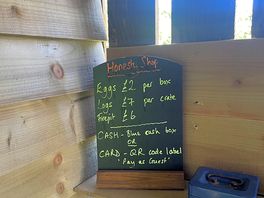 Honesty Shop
Eggs £2 per box
Logs £7 per crate
Firepit £6
CASH - Blue cash box
OR
CARD - QR code label
"Pay as Guest"